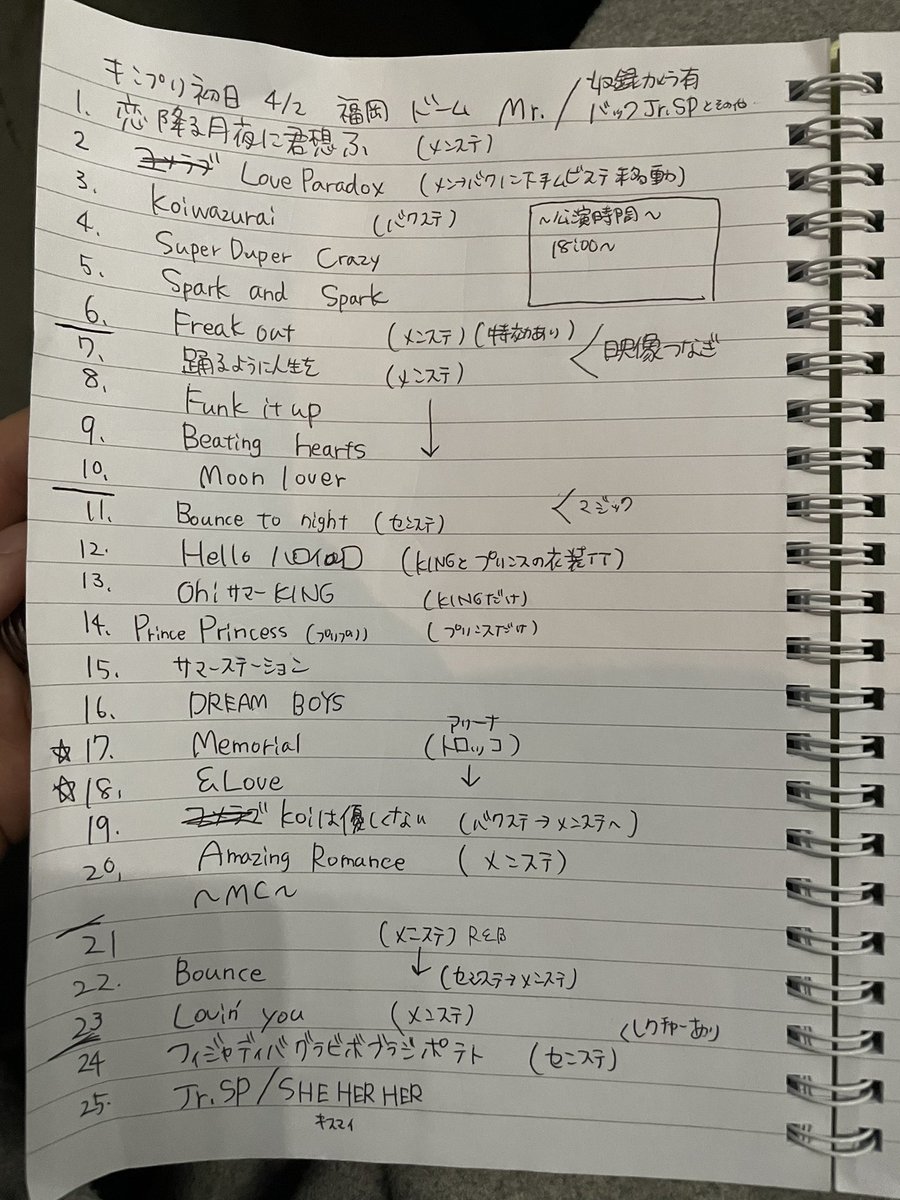 キンプリ初日 4/2 福岡 ドーム Mr. / 収録カメラ有
バックJr.SPとその他
1. 恋降る月夜に君想ふ (メンステ)
2 Love Paradox (メン→バクに下手ムビステ移動)
3. Koiwazurai (バクステ)
4. Super Duper Crazy
5. Spark and Spark
6. Freak out (メンステ) (特効あり)
〜公演時間〜
18:00〜
7. 踊るように人生を (メンステ)
<映像つなぎ
8. Funk it up ↓
9. Beating hearts
10. Moon lover
11. Bounce to night (センステ) <マジック
12. Hello ハロハロ (KINGとプリンスの衣装TT)
13. Oh! サマーKING (KINGだけ)
14. Prince Princess (プリプリ) (プリンスだけ)
15. サマーステーション
16. DREAM BOYS
☆17. Memorial (トロッコ)
アリーナ
☆18. &Love ↓
19. Koiは優しくない (バクステ→メンステへ)
20. Amazing Romance (メンステ)
〜MC〜
21 (メンステ) R&B
22. Bounce ↓ (センステ→メンステ)
23 Lovin' you (メンステ)
24 フィジャディバグラビボブラジポテト (センステ) <レクチャーあり
25. Jr.SP/SHE HER HER
キスマイ